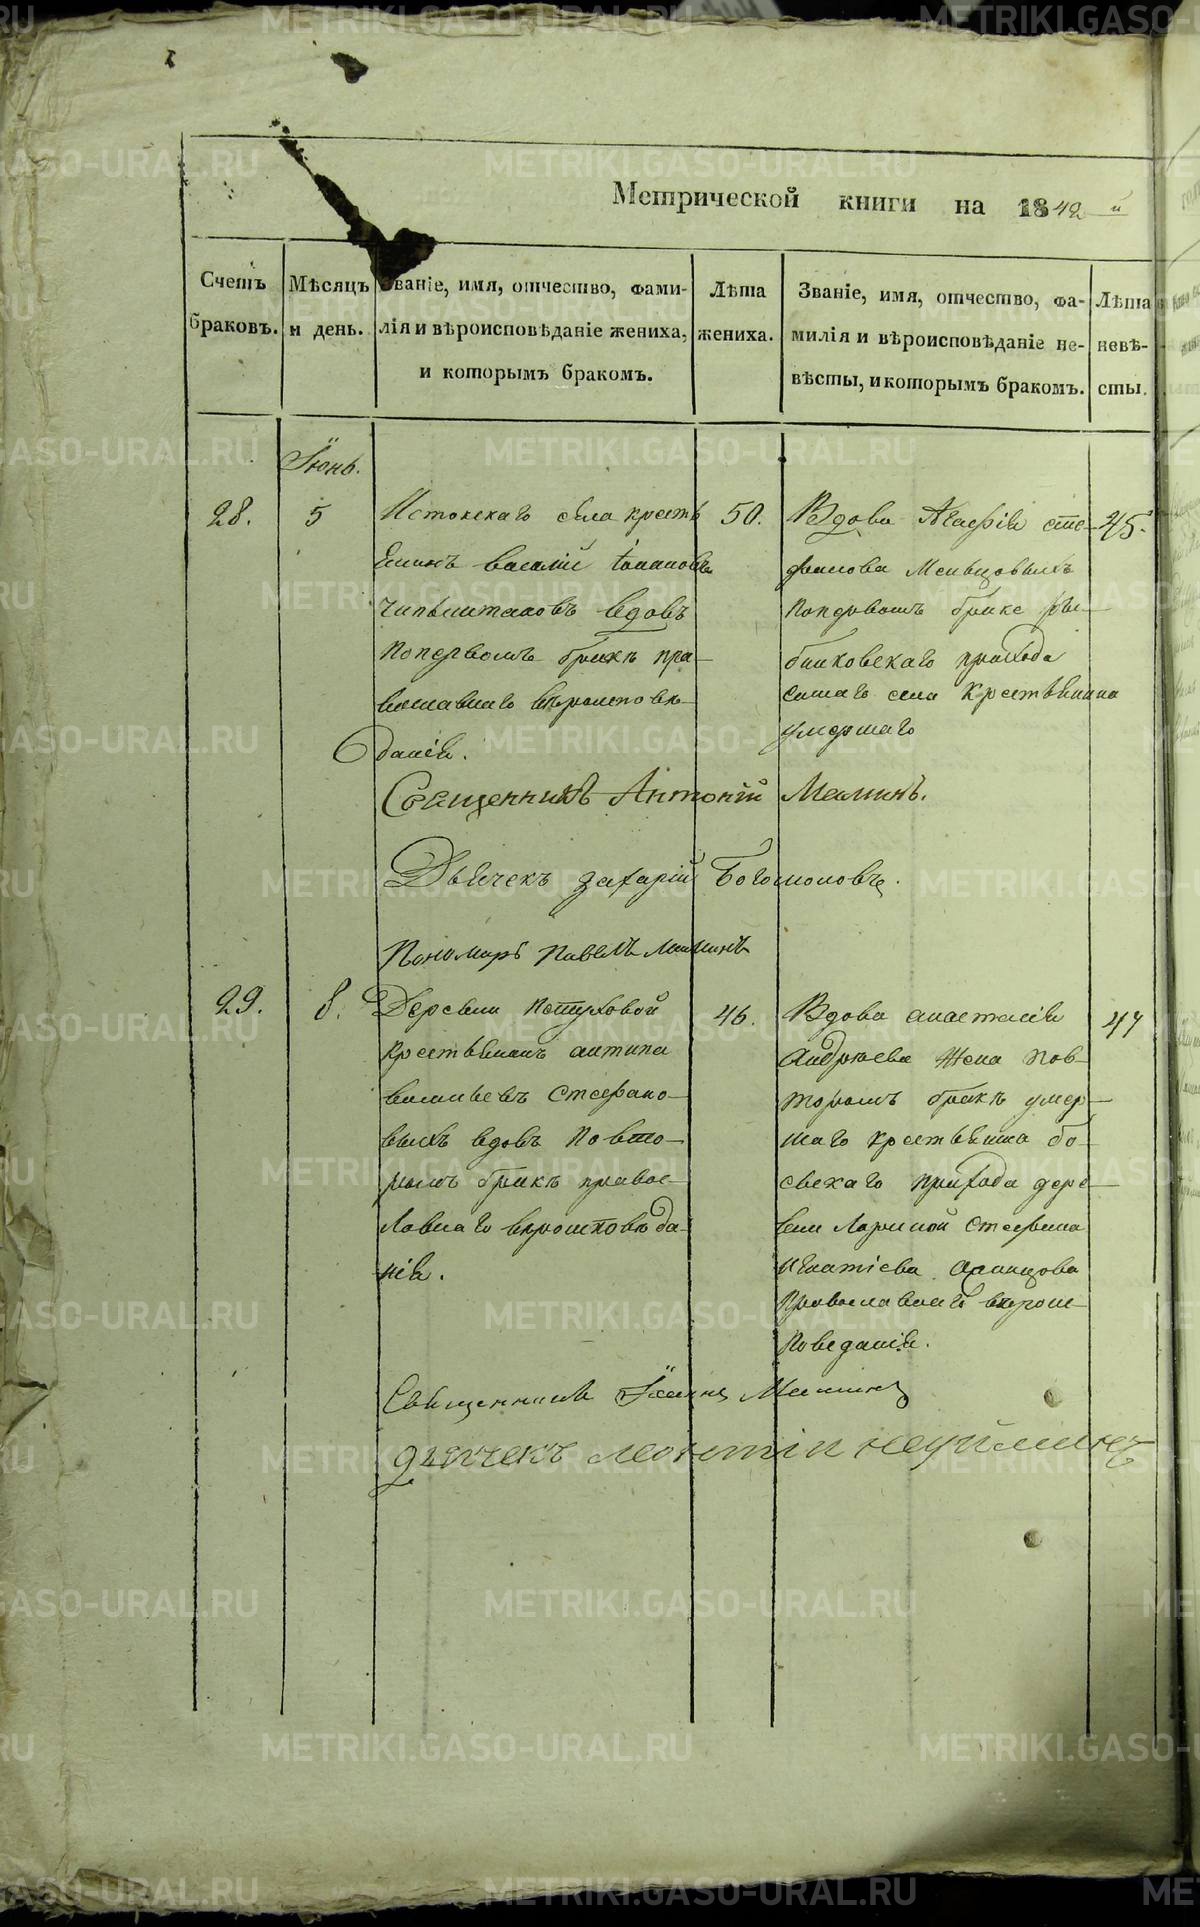 Метрической книги на 1842 й
Счетъ браковъ.
Мѣсяцъ и день.
Званіе, имя, отчество, фами-
лія и вѣроисповѣданіе жениха,
и которымъ бракомъ.
Лѣта жениха.
Званіе, имя, отчество, фа-
милія и вѣроисповѣданіе не-
вѣсты, и которымъ бракомъ.
Лѣта невѣ-
сты.
Іюнь.
28.
5
Истокскаго села кресть
янинъ василій
вдовъ
поперволъ бракѣ пра-
вославнаго вѣроисповѣ-
данія.
50.
Вдова Агафія сте-
фанова
браке
прихода
сшаго села крестьянина
умершаго
45.
Священникъ Антоній Маминъ.
Дьячекъ захарій Богомоловъ.
Пономарь Павелъ Маминъ
29.
8.
Деревни Петуховой
крестьянинъ антипа
васильевъ Стефано-
выхъ вдовъ повто-
ромъ бракѣ правос-
лавнаго вѣроисповѣда-
нія.
46.
Вдова анастасія
Андрюева жена пов-
торомъ бракѣ умер-
шаго крестьянина
прихода дере-
вни Лариной Стефана
игнатіева
Православнаго вѣроис-
поведанія.
47
Священникъ Іоаннъ Маминъ
дьячекъ леонтіи неуйминъ
METRIKI.GASO-URAL.RU